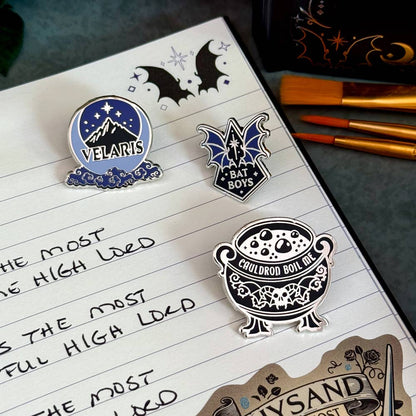 VELARIS
BAT
BOYS
CAULDRON BOIL ME
THE MOST
HIGH LORD
THE MOST
HIGH LORD
THE MOST
LORD